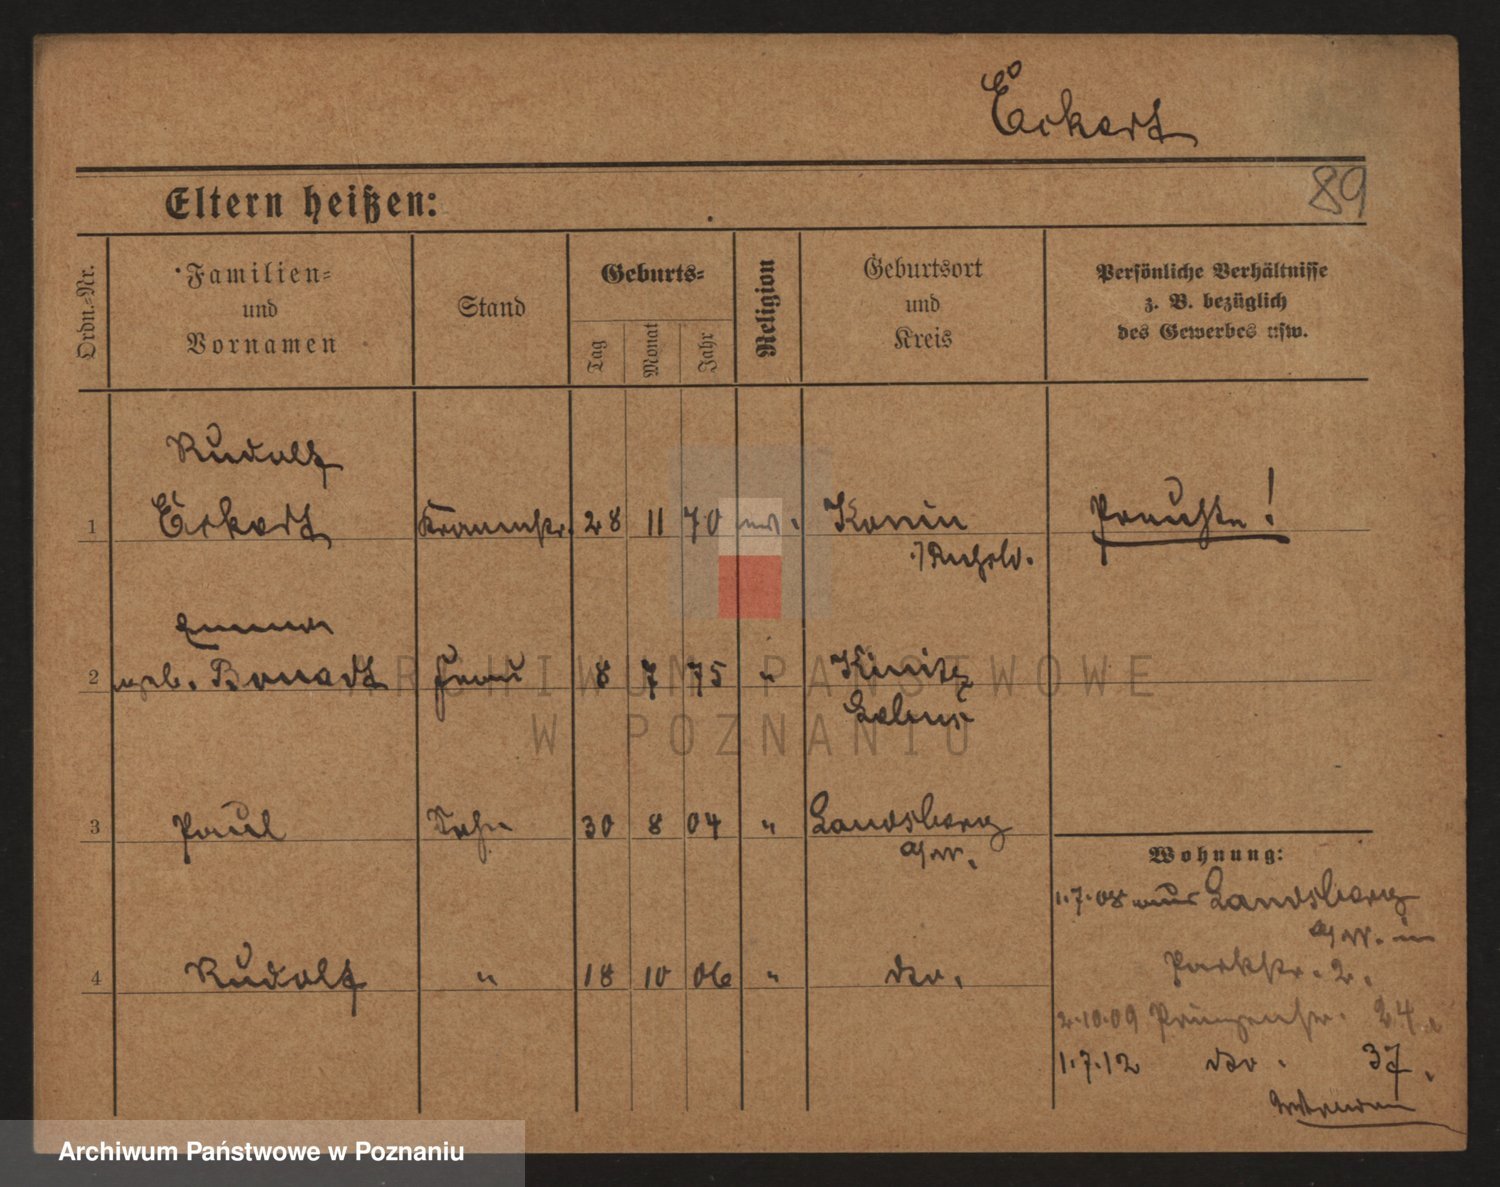 Eckert
89
Eltern heißen:
Ordn.-Nr.
Familien-
und
Vornamen
Stand
Geburts-
Tag
Monat
Jahr
Religion
Geburtsort
und
Kreis
Persönliche Verhältnisse
z. B. bezüglich
des Gewerbes usw.
Rudolf
1 Eckert 28 11 70 Konin
i/Rußld.
Emma
2 geb. Frau 8 7 75 "
3 Paul Sohn 30 8 04 " Landsberg
a/W.
4 Rudolf " 18 10 06 " do.
Wohnung:
1.7.08 aus Landsberg
a/W. in
Parkstr. 2.
2.10.09 Prinzenstr. 24.
1.7.12 do. 37.
ARCHIWUM PAŃSTWOWE
W POZNANIU
Archiwum Państwowe w Poznaniu